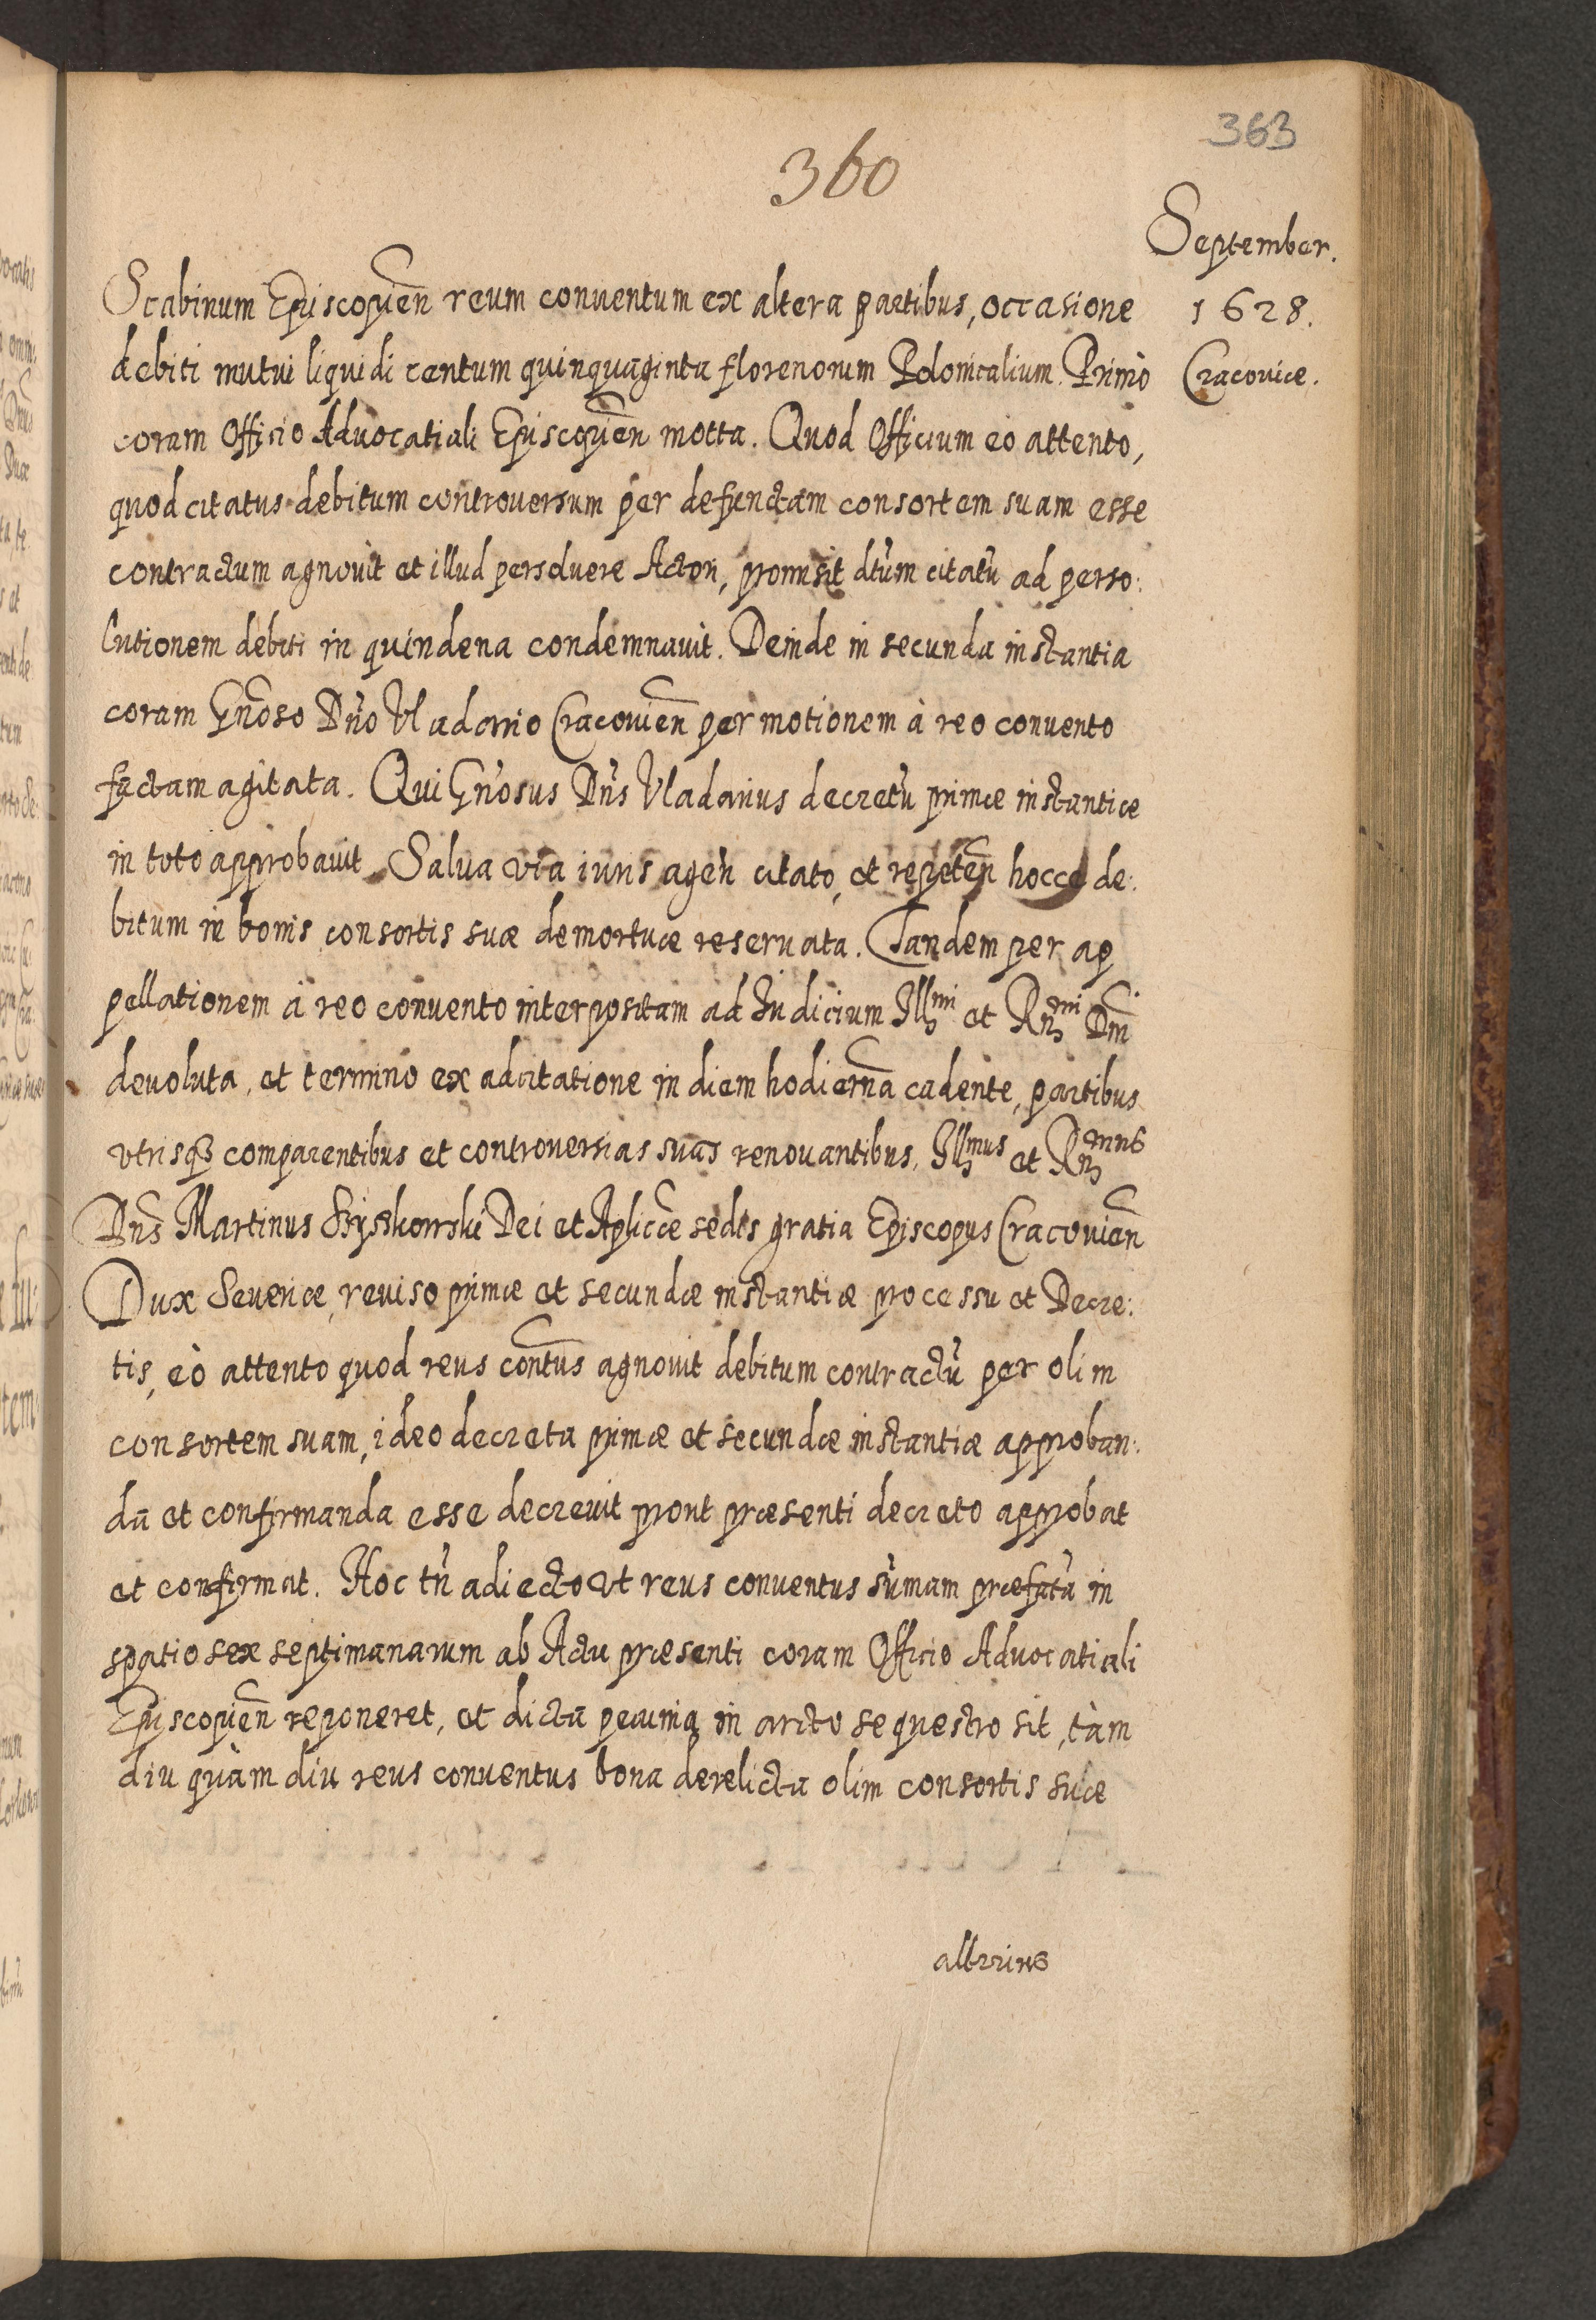 363
360
September.
Scabinum Episcopień reum conuentum ex altera partibus, occasione
1628.
debiti mutui liquidi centum quinquaginta florenorum Polonicalium. Primò
Cracouiæ.
coram Officio Aduocatiali Episcopień motta. Quod Officium eo attento,
quod citatus debitum controuersum per defunctam consortem suam esse
contractum agnouit et illud persoluere Actori, promisit dtum citatũ ad perso:
lutionem debiti in quindena condemnauit. Deinde in secunda instantia
coram Gnoso Dño Vladario Cracouień per motionem à reo conuento
factam agitata. Qui Gnosus Dñs Vladarius decretũ primæ instantiæ
in toto approbauit. Salua via iuris ageñ citato, et repeteñ hocce de:
bitum in bonis consortis suæ demortuæ reseruata. Tandem per ap
pellationem à reo conuento interpositam ad Iudicium Illmi et Rndmi Dni
deuoluta, et termino ex adcitatione in diem hodierna cadente, partibus
vtrisq3 comparentibus et controuersias suas renouantibus, Illmus et Rndmus
Dñs Martinus Szyszkowski Dei et Aplicæ sedis gratia Episcopus Cracouień
Dux Seueriæ, reuiso primæ et secundæ instantiæ processu et Decre:
tis, eò attento quod reus contus agnouit debitum contractũ per olim
consortem suam, ideo decreta primæ et secundæ instantiæ approban:
da et confirmanda esse decreuit prout præsenti decreto approbat
et confirmat. Hoc tñ adiecto vt reus conuentus sũmam præfatã in
spatio sex septimanarum ab Actu præsenti coram Officio Aduocatiali
Episcopień reponeret, et dicta pecunia in arcto sequestro sit, tàm
diu quàm diu reus conuentus bona derelicta olim consortis suæ